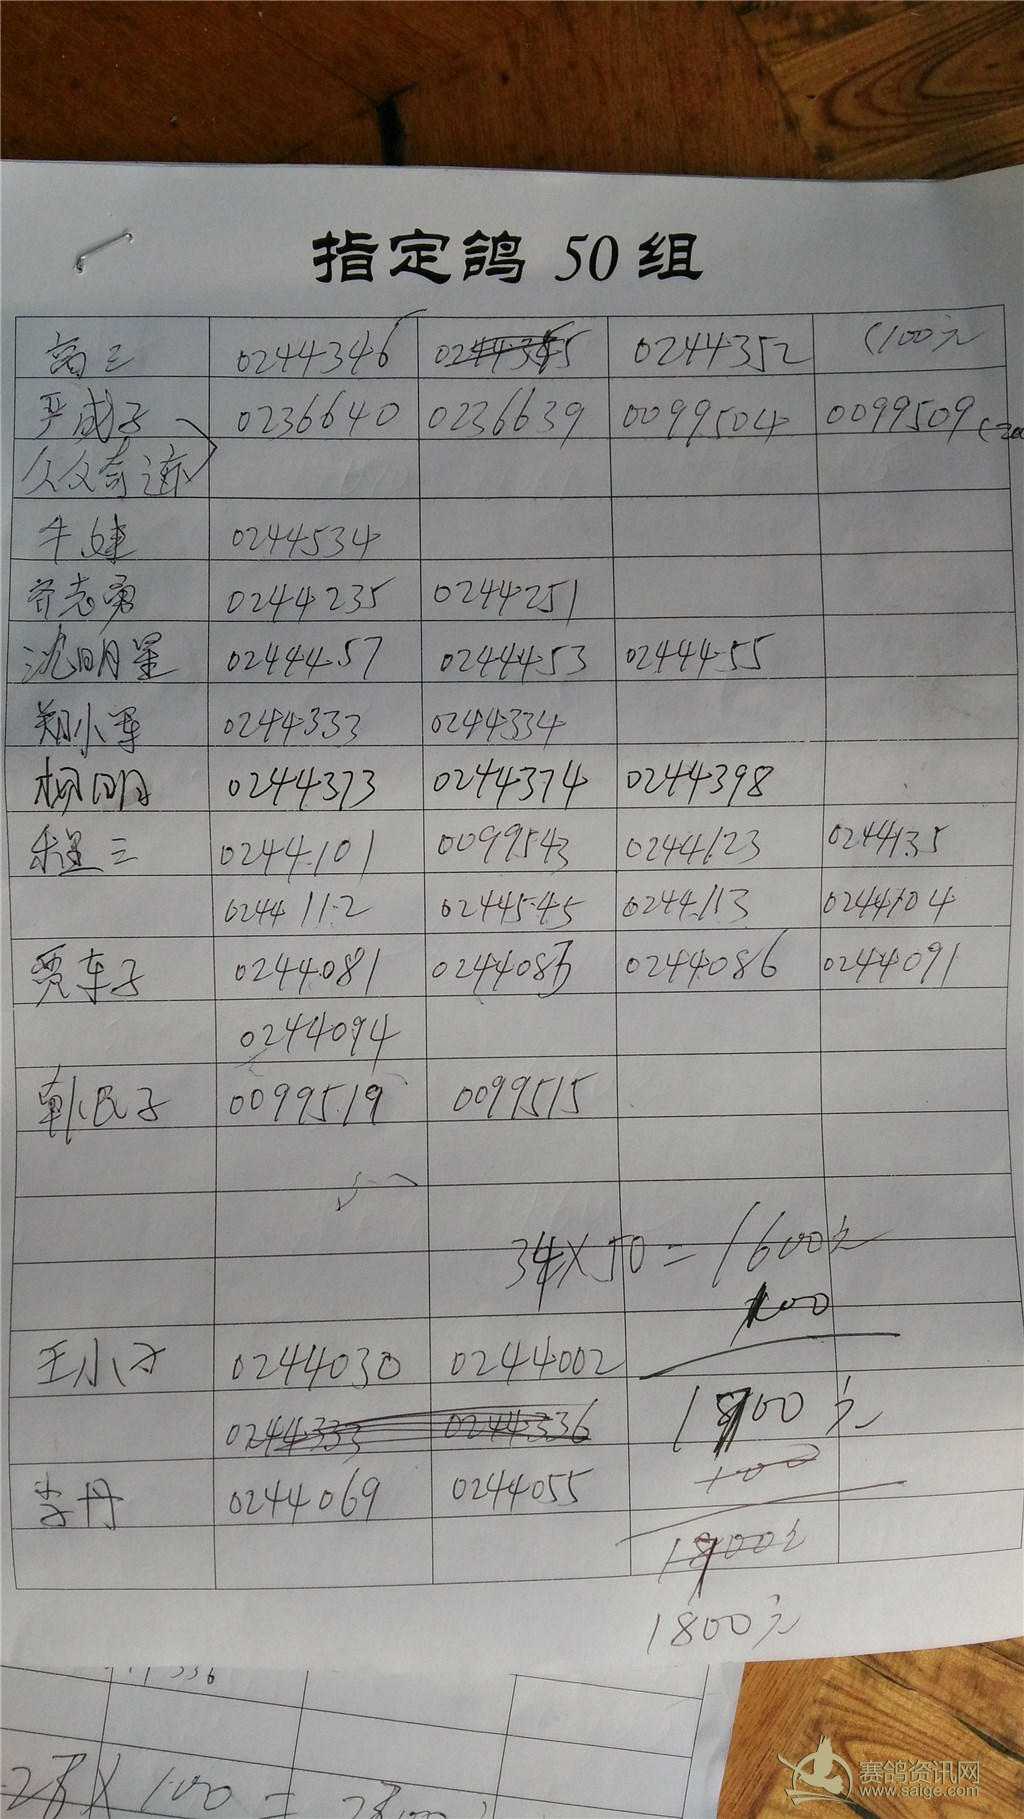 指定鸽 50 组
高三 0244346 0244345 0244352 (100元
严成子 0236640 0236639 0099504 0099509
牛建 0244534
齐志勇 0244235 0244251
沈明星 0244457 0244453 0244455
郑小军 0244333 0244334
杨明 0244373 0244374 0244398
程三 0244101 0099543 0244123 0244135
0244112 0244545 0244113 0244104
贾车子 0244081 0244086 0244091
0244094
韩民子 0099519 0099515
34X50=1600元
100
王小子 0244030 0244002
0244333 0244336 00元
100
李丹 0244069 0244055
1800元
336
X 100 =
赛鸽资讯网
www.saige.com